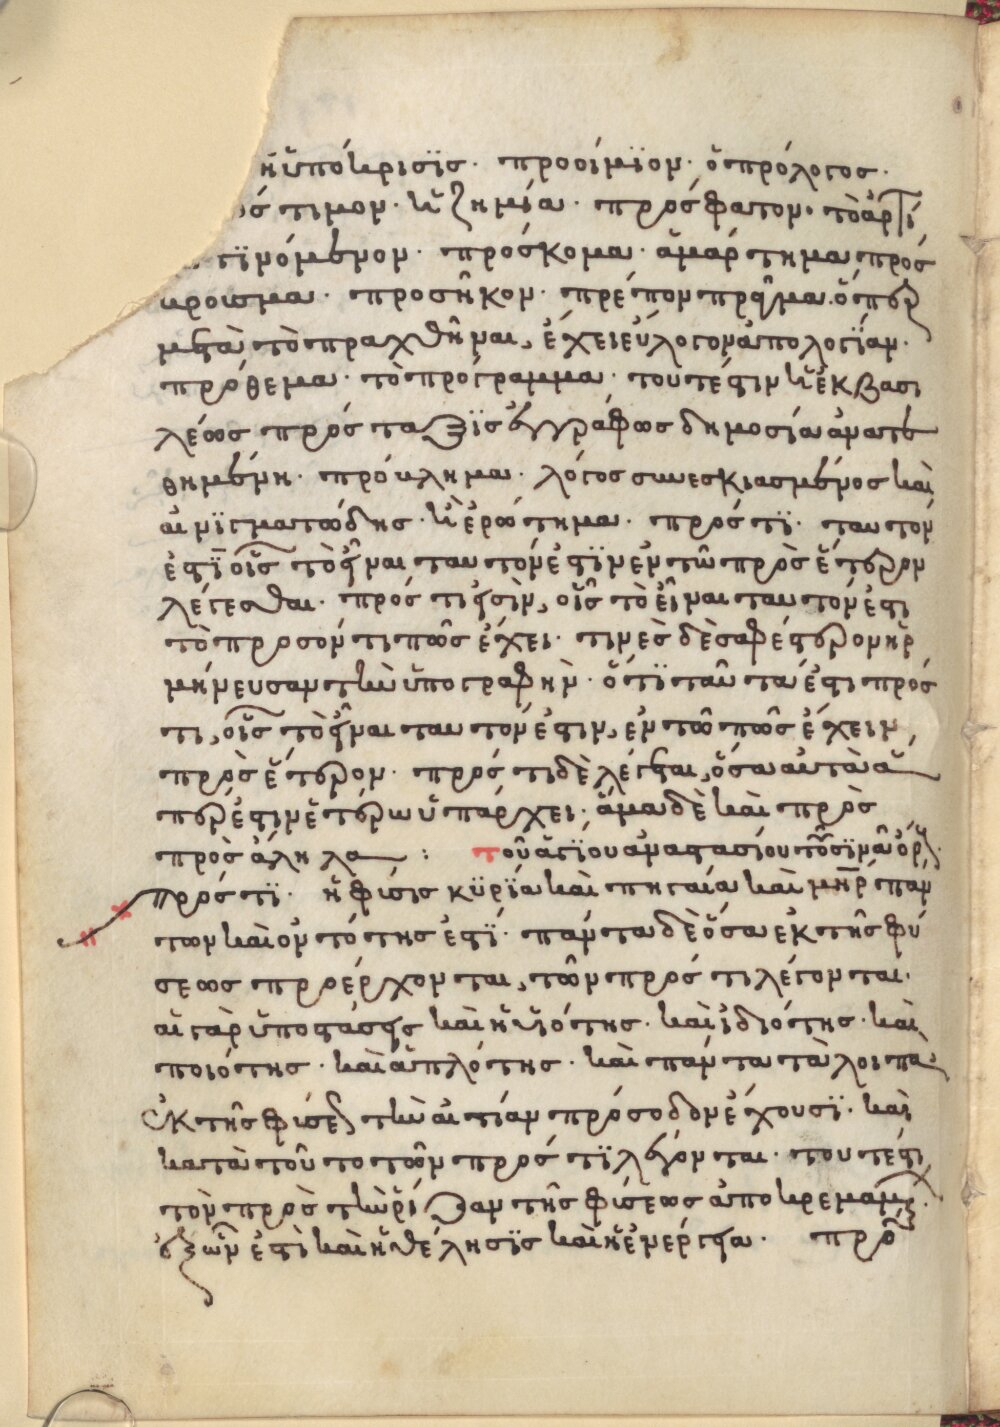 ἡ ὑπόκρισϊς · προοίμϊον · ὁ πρόλογος ·
ός τιμον · ἡ ζημία · πρόσφατον · τὸ ἀρτί
γϊνόμενον · πρόσκομα · ἁμάρτημα πρός
κρουσμα · προσῆκον · πρέπον πρᾶγμα · ὅπερ
μετὰ τὸ πραχθῆναι, ἔχει εὔλογον ἀπολογίαν ·
πρόθεμα · τὸ πρόγραμμα · τουτέστιν ἡ ἐκ βασι
λέως πρόσταξϊς ἐγγράφως δημοσία ἀνατε
θημένη · πρόκλημα · λόγος συνεσκιασμένος καὶ
αἰνϊγματώδης · ἢ ἐρώτημα · πρός τϊ · ταυτόν
ἐστϊ οἷς τὸ εἶναι ταυτόν ἐστϊν ἐν τῶ πρὸς ἕτερον
λέγεσθαι · πρός τι εἰσὶν, οἷς τὸ εἶναι ταυτόν ἐστι
τὸ προσόν τι πῶς ἔχει · τινὲς δὲ σαφέστερον ἡρ
μήνευσαν τὴν ὑπογραφὴν · ὅτι ταῦτά ἐστι πρός
τι, οἷς τὸ εἶναι ταυτόν ἐστιν, ἐν τῶ πῶς ἔχειν
πρὸς ἕτερον · πρός τι δὲ λέγεται, ὅσα αὐτὰ ἅ
περ ἐστὶν ἑτέρων ὑπάρχει · ἅμα δὲ καὶ πρὸς
πρὸς ἄληλα :
τοῦ ἁγίου ἀναστασίου τοῦ σϊνᾶ ὄρους ·
πρός τϊ · ἡ φύσις κυρία καὶ πηγαία καὶ μήτηρ πάν
των καὶ ὀντότης ἐστϊ · πάντα δὲ ὅσα ἐκ τῆς φύ
σεως προέρχονται, τῶν πρός τι λέγονται ·
αἱ γὰρ ὑποστάσεις καὶ ἡ υἱότης · καὶ ἰδιότης · καὶ
ποιότης · καὶ ἁπλότης · καὶ πάντα τὰ λοιπὰ
ἐκ τῆς φύσεως τὴν αἰτίαν πρόσοδον ἔχουσϊ · καὶ
κατὰ τοῦτο τῶν πρός τϊ λέγονται · τουτέστι
τὸν πρὸς τὴν ῥίζαν τῆς φύσεως ἀποκρεμαμένων ·
ἐξ ὧν ἐστὶ καὶ ἡ θέλησϊς καὶ ἡ ἐνέργεια ·